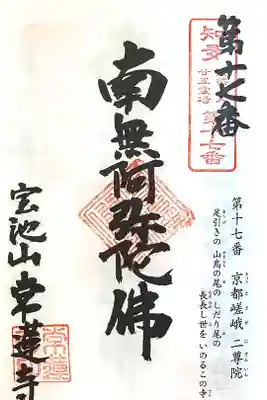 第十七番
知多
廿五霊場
第十七番
南無阿弥陀佛
宝池山 常蓮寺
第十七番 京都嵯峨 二尊院
足引きの 山鳥の尾の しだり尾の
長長し世を いのるこの寺